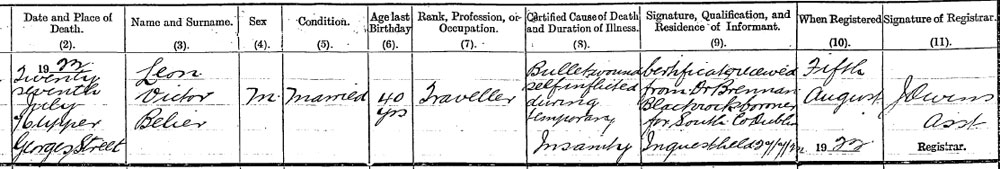 Date and Place of Death. Name and Surname. Sex Condition. Age last Birthday Rank, Profession, or Occupation. Certified Cause of Death and Duration of Illness. Signature, Qualification, and Residence of Informant. When Registered Signature of Registrar.
(2). (3). (4). (5). (6) (7). (8). (9). (10). (11).
1922 Leon Bullet wound Certificate received Fifth
Twenty seventh Victor M Married 40 yrs Traveller self inflicted from Dr Brennan August J Owens
July Belier during Blackrock Coroner Asst
Upper temporary for South Co Dublin
Georges Street Insanity Inquest held 1922 Registrar.